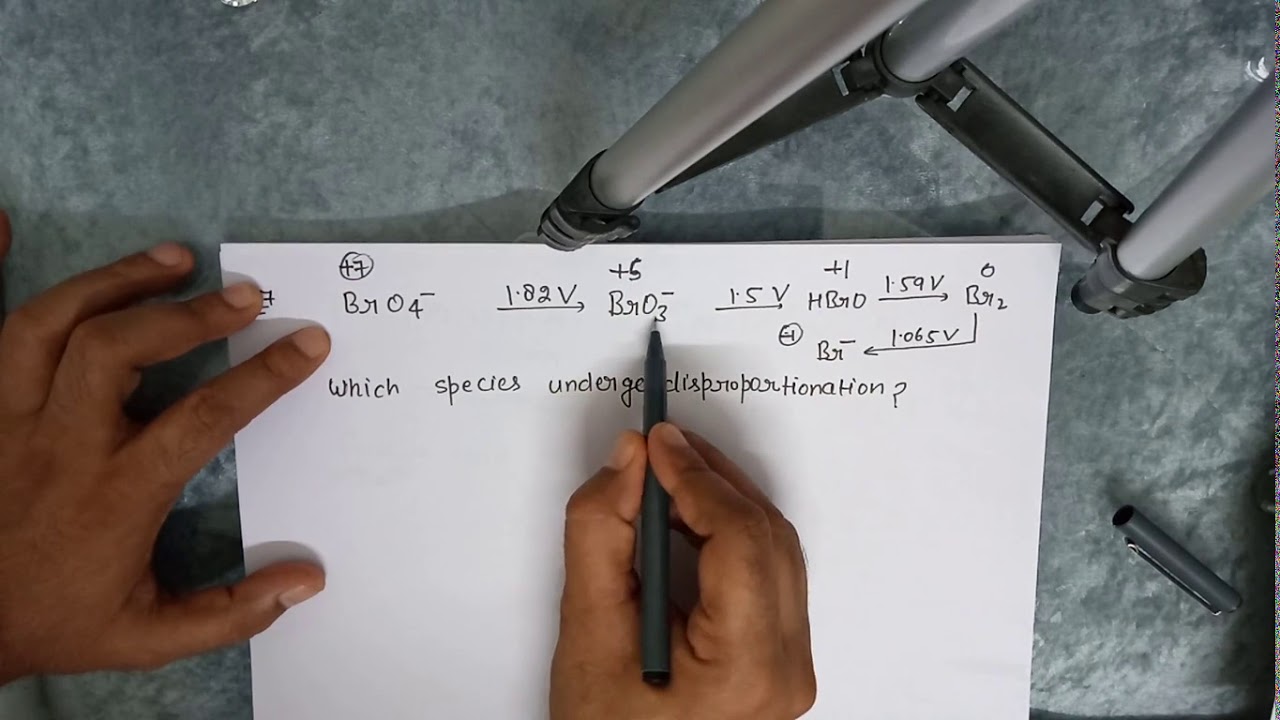 +7 +5 +1 0
7 BrO4⁻ 1.82 V→ BrO3⁻ 1.5 V→ HBrO 1.59 V→ Br2
-1 Br⁻ ←1.065 V
Which species disproportionation?